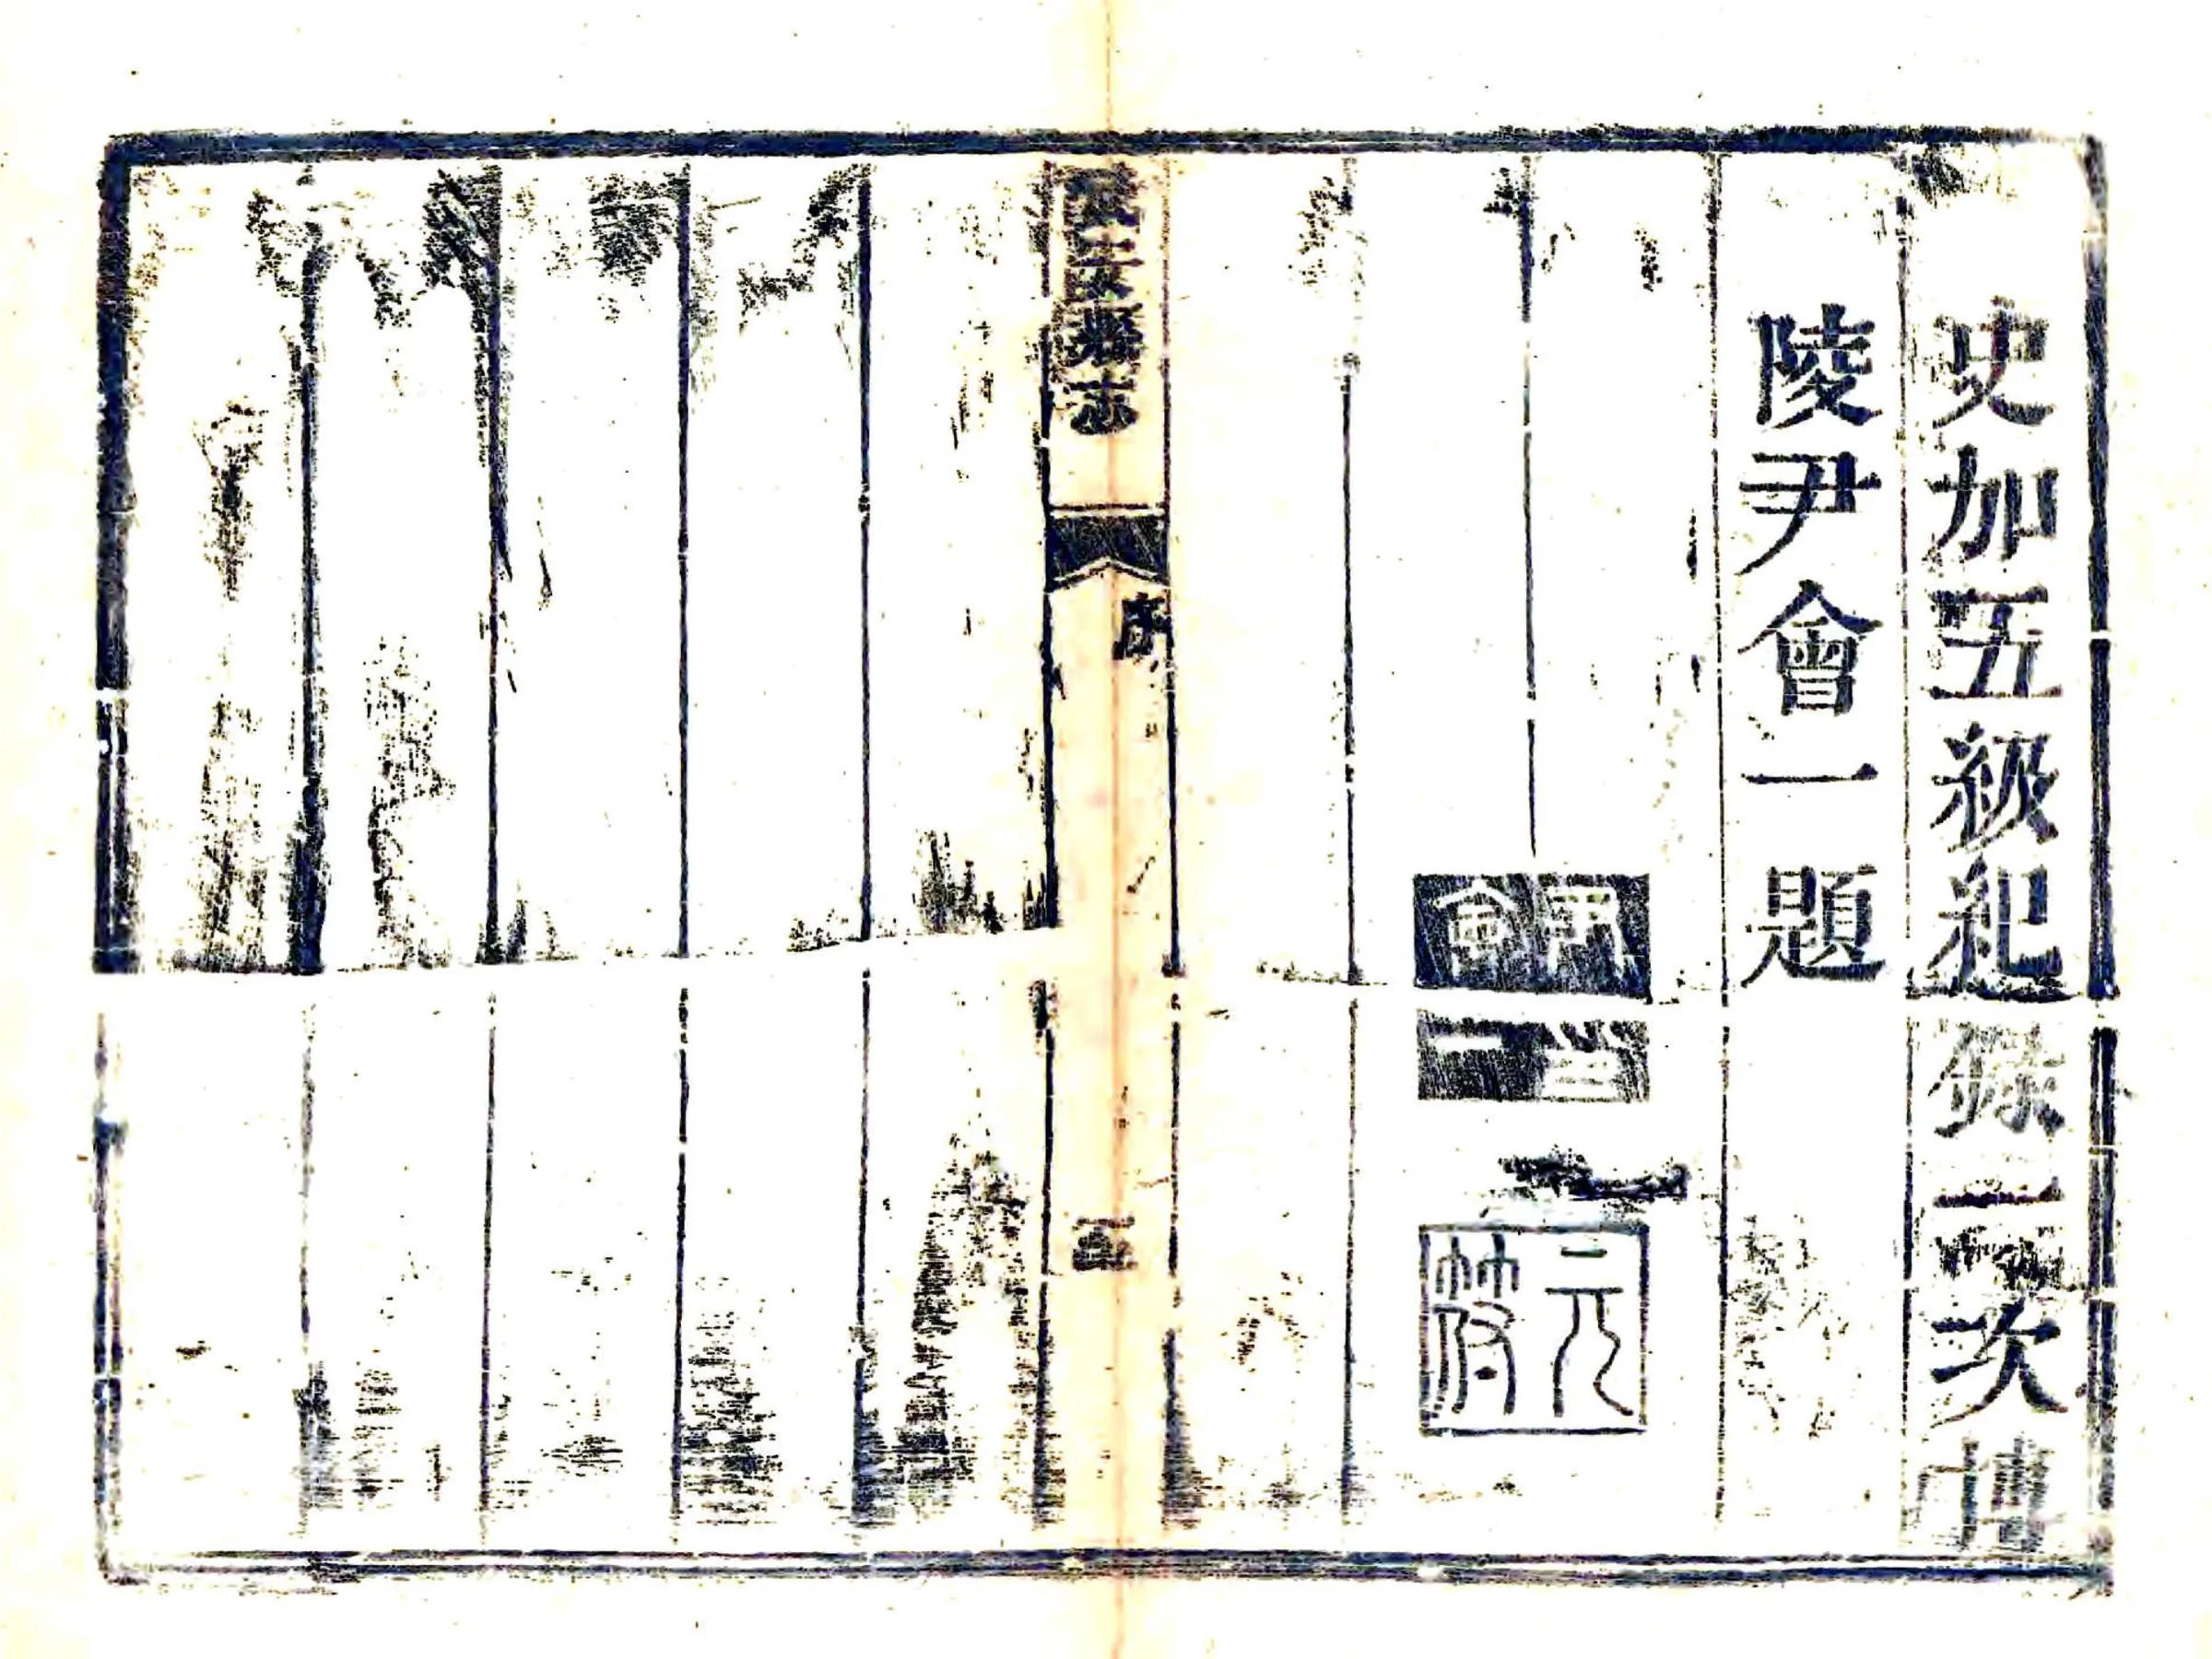 史加五級紀錄二次博
陵尹會一題
尹印
會一
元
縣志
序
五